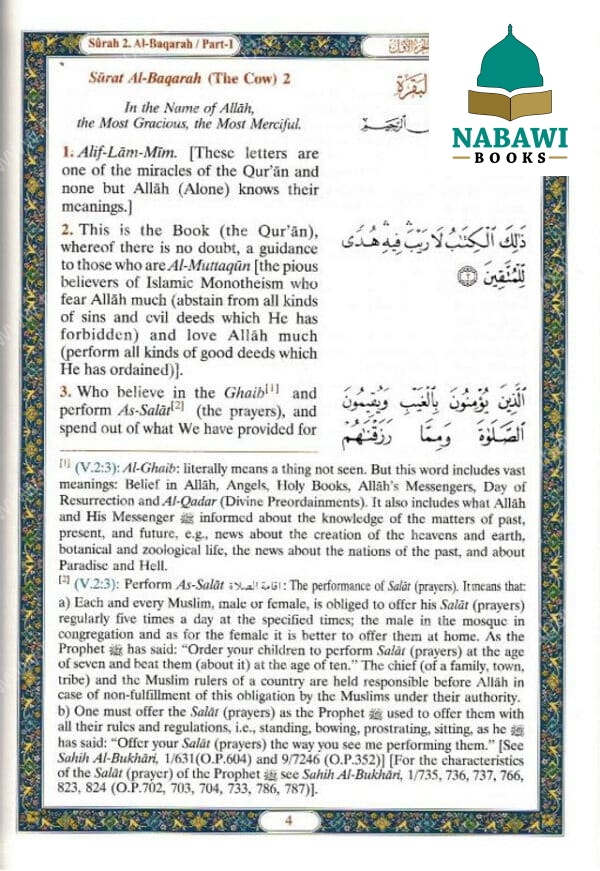 Sūrah 2. Al-Baqarah / Part-1
الجزء الأول
NABAWI
BOOKS
Sūrat Al-Baqarah (The Cow) 2
In the Name of Allāh,
the Most Gracious, the Most Merciful.
1. Alif-Lām-Mīm. [These letters are
one of the miracles of the Qur'ān and
none but Allāh (Alone) knows their
meanings.]
2. This is the Book (the Qur'ān),
whereof there is no doubt, a guidance
to those who are Al-Muttaqūn [the pious
believers of Islamic Monotheism who
fear Allāh much (abstain from all kinds
of sins and evil deeds which He has
forbidden) and love Allāh much
(perform all kinds of good deeds which
He has ordained)].
3. Who believe in the Ghaib[1] and
perform As-Salāt[2] (the prayers), and
spend out of what We have provided for
ذَٰلِكَ ٱلْكِتَٰبُ لَا رَيْبَ ۛ فِيهِ ۛ هُدًى
لِّلْمُتَّقِينَ ٢
ٱلَّذِينَ يُؤْمِنُونَ بِٱلْغَيْبِ وَيُقِيمُونَ
ٱلصَّلَوٰةَ وَمِمَّا رَزَقْنَٰهُمْ
[1] (V.2:3): Al-Ghaib: literally means a thing not seen. But this word includes vast
meanings: Belief in Allāh, Angels, Holy Books, Allāh's Messengers, Day of
Resurrection and Al-Qadar (Divine Preordainments). It also includes what Allāh
and His Messenger ﷺ informed about the knowledge of the matters of past,
present, and future, e.g., news about the creation of the heavens and earth,
botanical and zoological life, the news about the nations of the past, and about
Paradise and Hell.
[2] (V.2:3): Perform As-Salāt إقامة الصلاة: The performance of Salāt (prayers). It means that:
a) Each and every Muslim, male or female, is obliged to offer his Salāt (prayers)
regularly five times a day at the specified times; the male in the mosque in
congregation and as for the female it is better to offer them at home. As the
Prophet ﷺ has said: “Order your children to perform Salāt (prayers) at the age
of seven and beat them (about it) at the age of ten.” The chief (of a family, town,
tribe) and the Muslim rulers of a country are held responsible before Allāh in
case of non-fulfillment of this obligation by the Muslims under their authority.
b) One must offer the Salāt (prayers) as the Prophet ﷺ used to offer them with
all their rules and regulations, i.e., standing, bowing, prostrating, sitting, as he ﷺ
has said: “Offer your Salāt (prayers) the way you see me performing them.” [See
Sahih Al-Bukhāri, 1/631(O.P.604) and 9/7246 (O.P.352)] [For the characteristics
of the Salāt (prayer) of the Prophet ﷺ see Sahih Al-Bukhāri, 1/735, 736, 737, 766,
823, 824 (O.P.702, 703, 704, 733, 786, 787)].
4